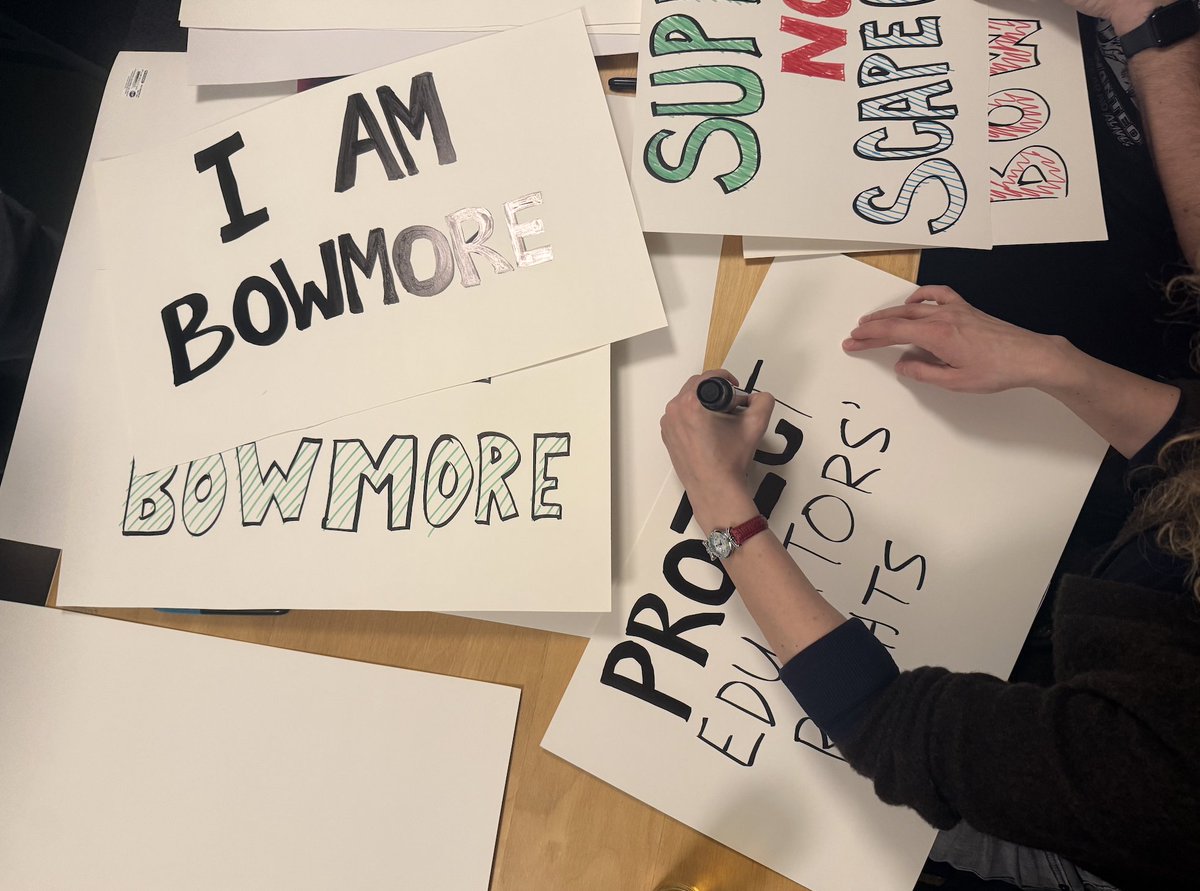 I AM
BOWMORE
BOWMORE
SUP
NO
SCAPE
BOW
PROTECT
EDUCATORS'
RIGHTS